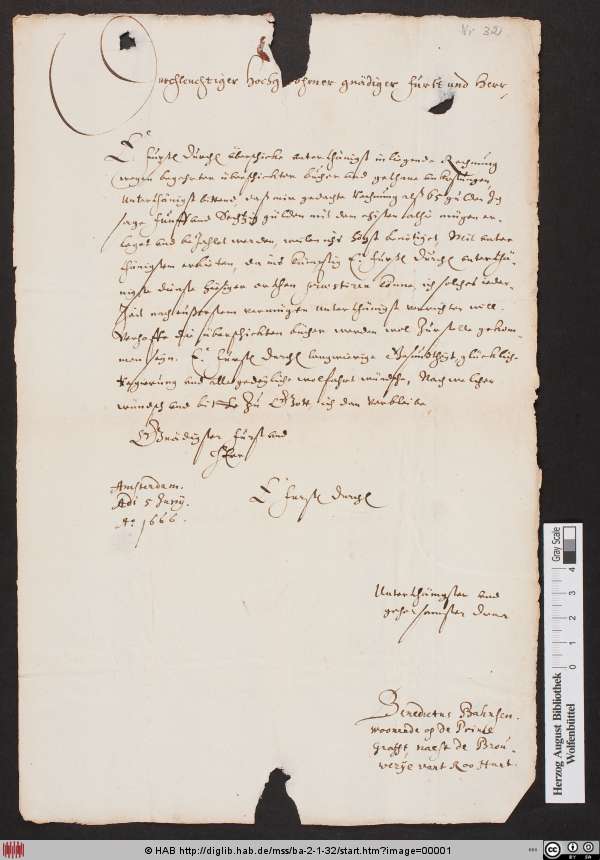 Nr. 32
Durchleuchtiger Hochgebohrner gnädiger Fürst und Herr,
E. Fürstl. Durchl. überschicke unterthänigst inligende Rechnung
wegen begehrten überschickten bücher und gethane unkostungen,
Unterthänigst bittend, daß mir gedachte Rechnung alß 65 gulden Ich
sage fünff und Sechtzig gulden mit dem ehisten alhie mögen er-
leget und bezahlet werden, weilen ichs höchst benötiget, Mit unter
thänigstem erbieten, da ins künfftig E. Fürstl. Durchl. unterthä-
nigste dienste dieser orthen praestiren könne, ich solches jeder
Zeit nach eußerstem vermögen unterthänigst verrichten will.
Verhoffe die überschickten bücher werden wol Zurstelle gekom-
men seyn. E. Fürstl. Durchl. langwierige Gesundtheyt, glückliche
Regierung und alle gedeyliche wolfahrt wünsche, Nach welcher
wünsch und bitte Zu Gott, ich dan verbleibe
Gnädigster Fürst und
Herr
Amsterdam.
Adi 5 Junij.
Ao. 1666.
E Fürstl Durchl
Unterthänigster und
gehorsamster diener
Benedictus Bahnsen.
woonende op de Prince
grafft, naest de Brou-
werije vant Roo Hart.
Gray Scale
0 1 2 3 4
Herzog August Bibliothek
Wolfenbüttel
© HAB http://diglib.hab.de/mss/ba-2-1-32/start.htm?image=00001
BY SA